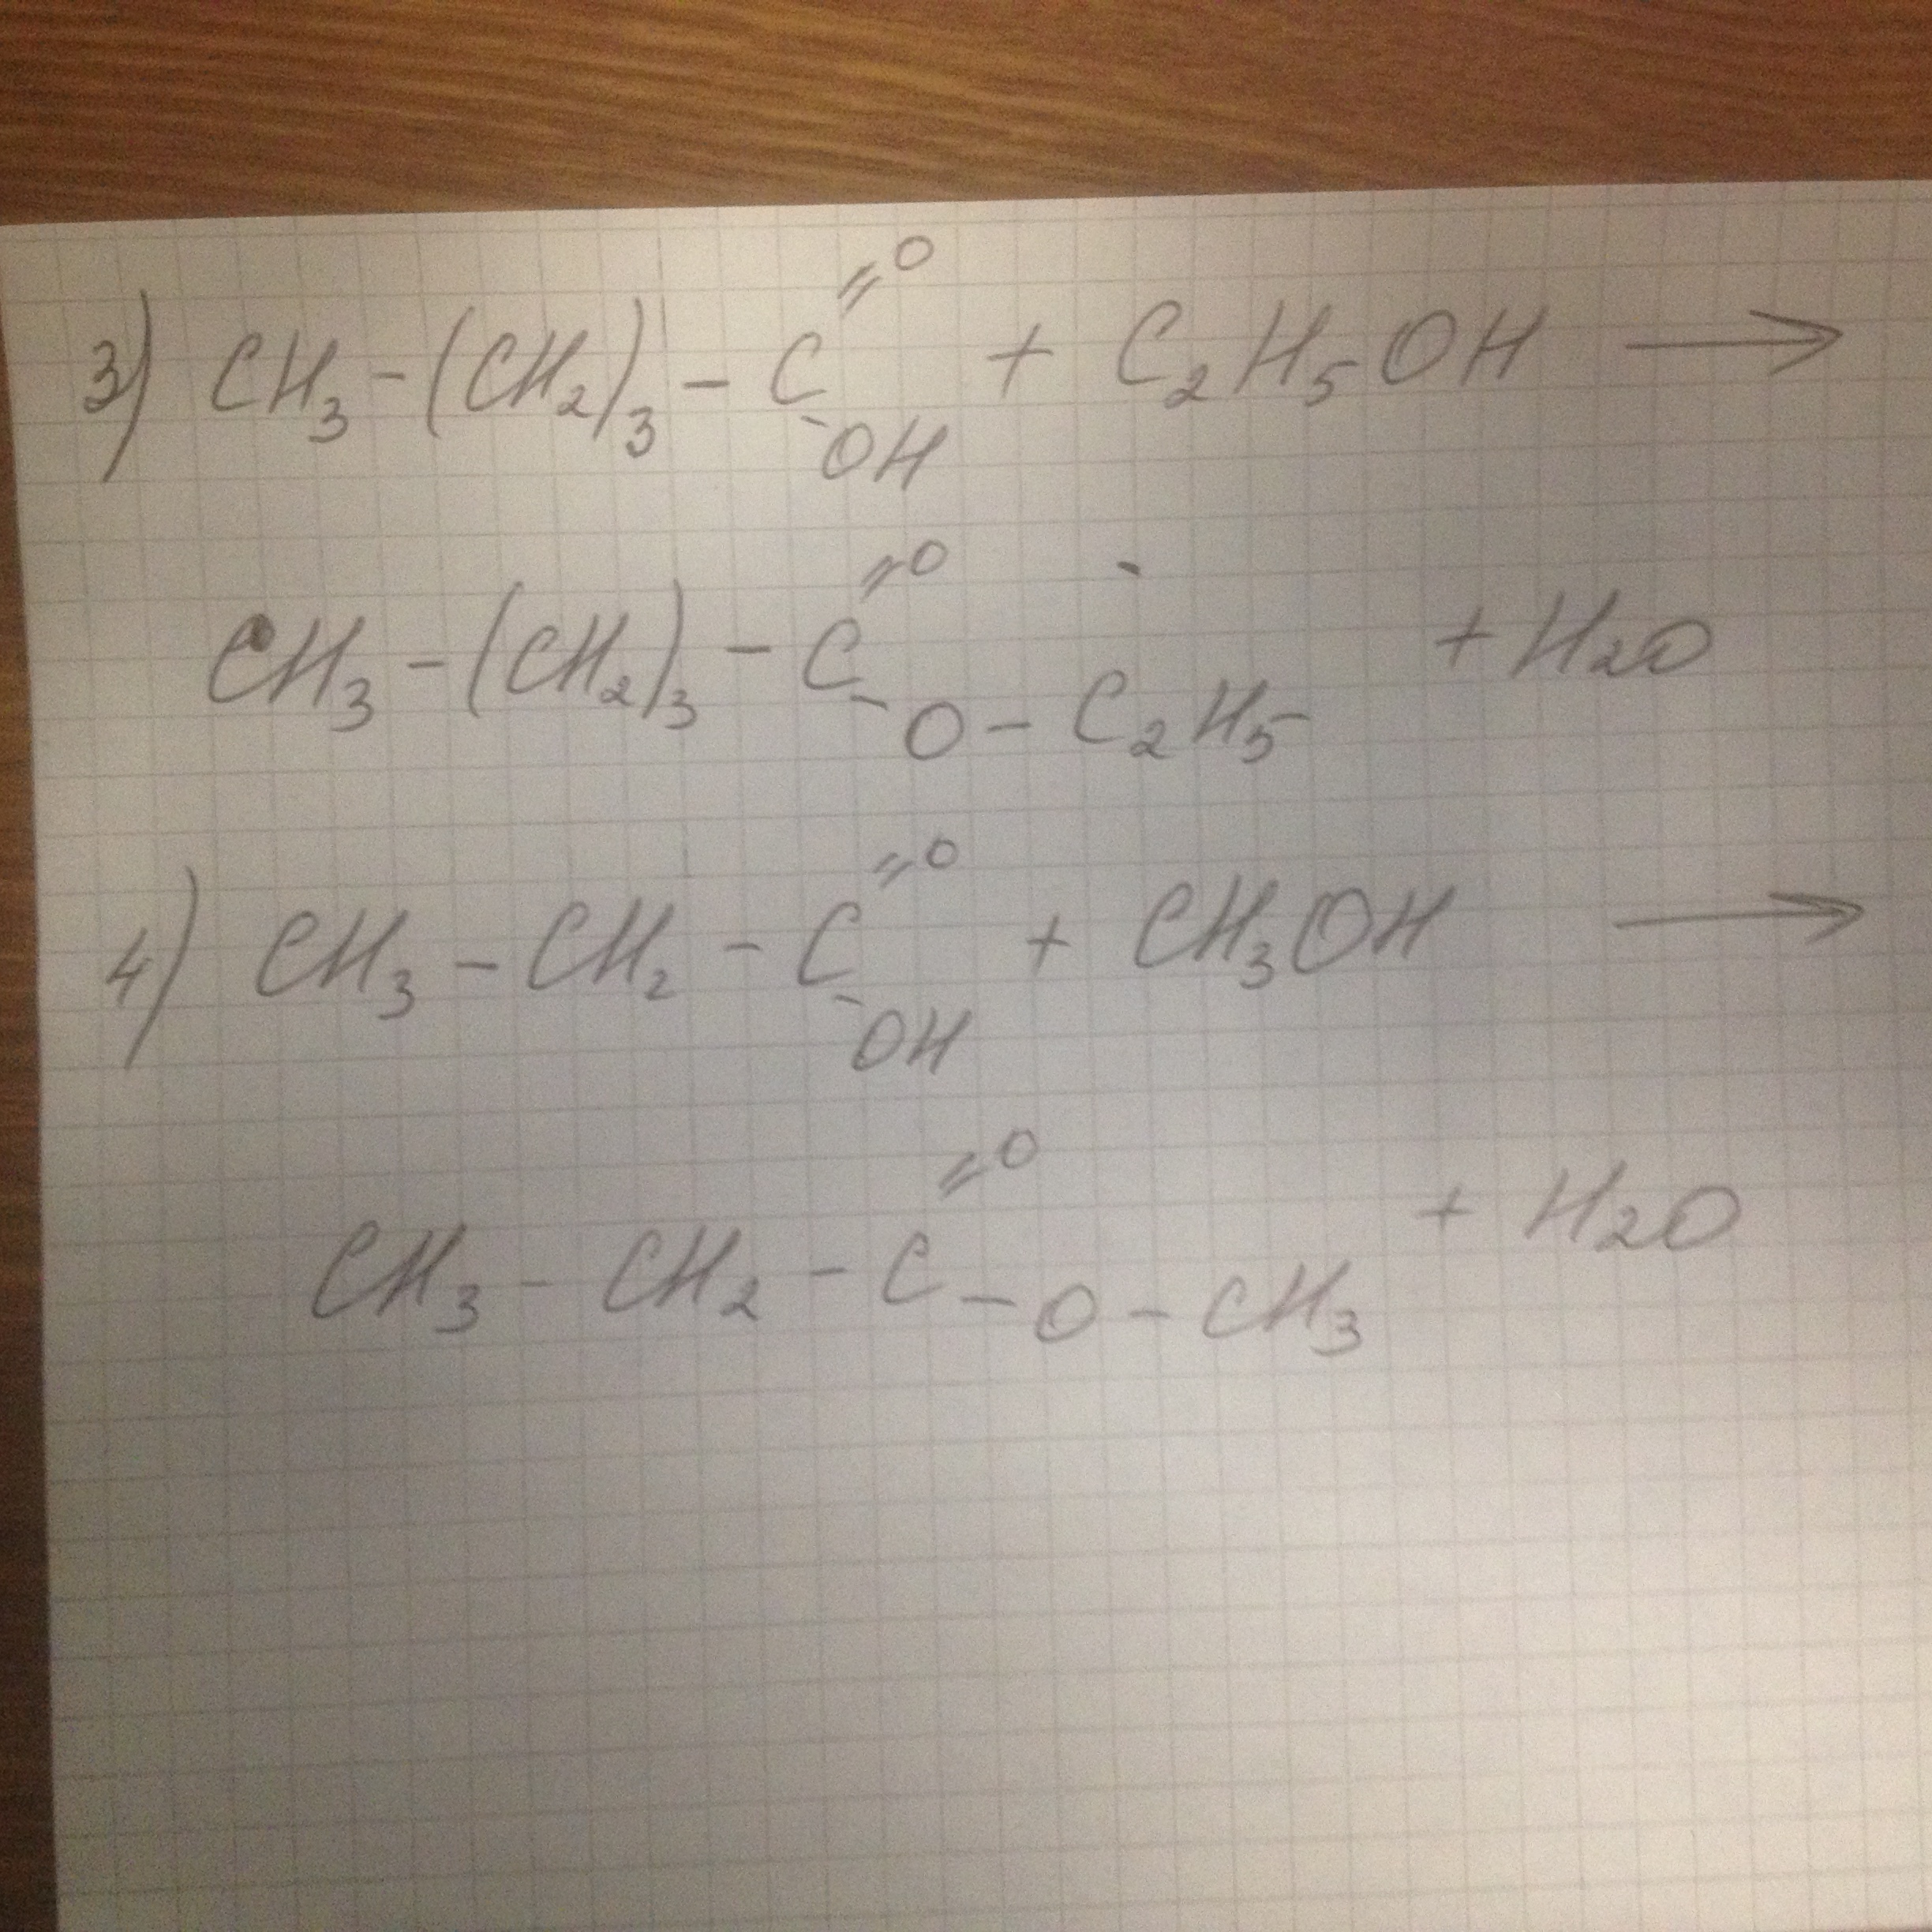 3) CH₃-(CH₂)₃-C(=O)(-OH) + C₂H₅OH →
CH₃-(CH₂)₃-C(=O)(-O-C₂H₅) + H₂O
4) CH₃-CH₂-C(=O)(-OH) + CH₃OH →
CH₃-CH₂-C(=O)(-O-CH₃) + H₂O